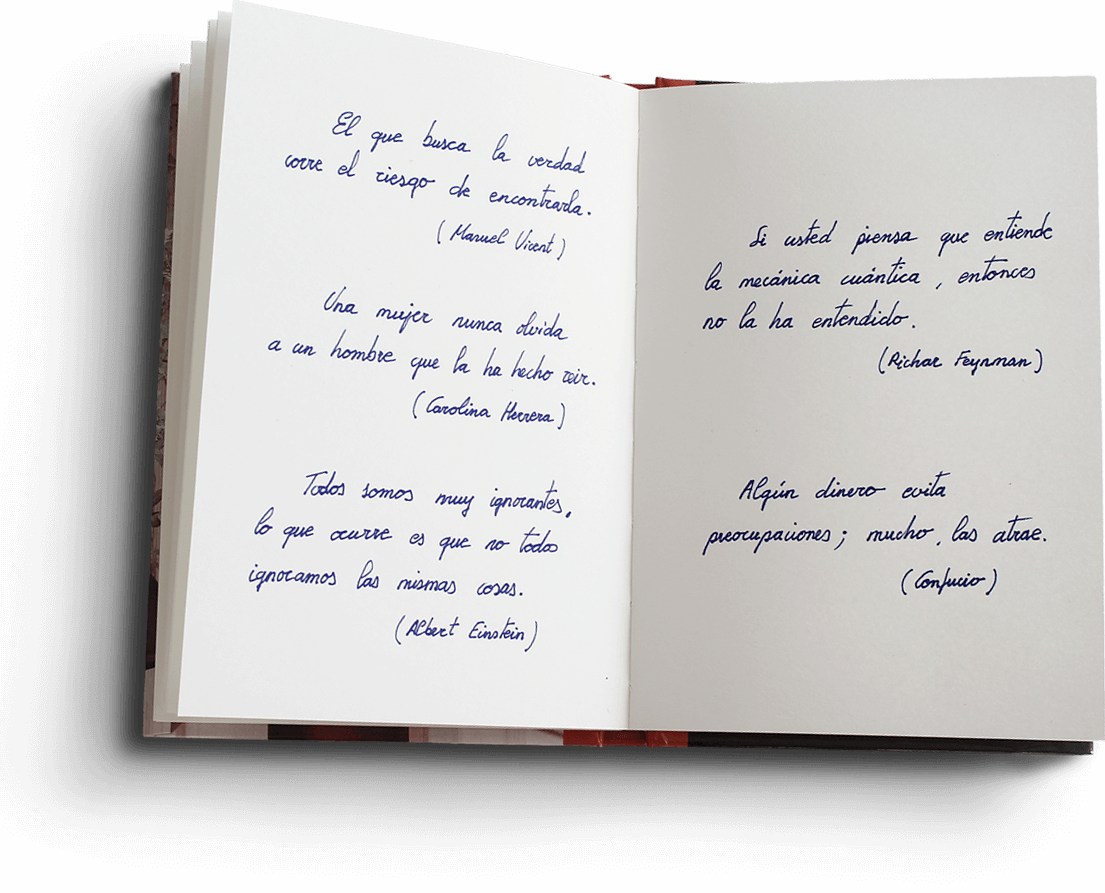 El que busca la verdad
corre el riesgo de encontrarla.
(Manuel Vicent)
Una mujer nunca olvida
a un hombre que la ha hecho reir.
(Carolina Herrera)
Todos somos muy ignorantes,
lo que ocurre es que no todos
ignoramos las mismas cosas.
(Albert Einstein)
Si usted piensa que entiende
la mecánica cuántica, entonces
no la ha entendido.
(Richar Feynman)
Algún dinero evita
preocupaciones; mucho, las atrae.
(Confucio)